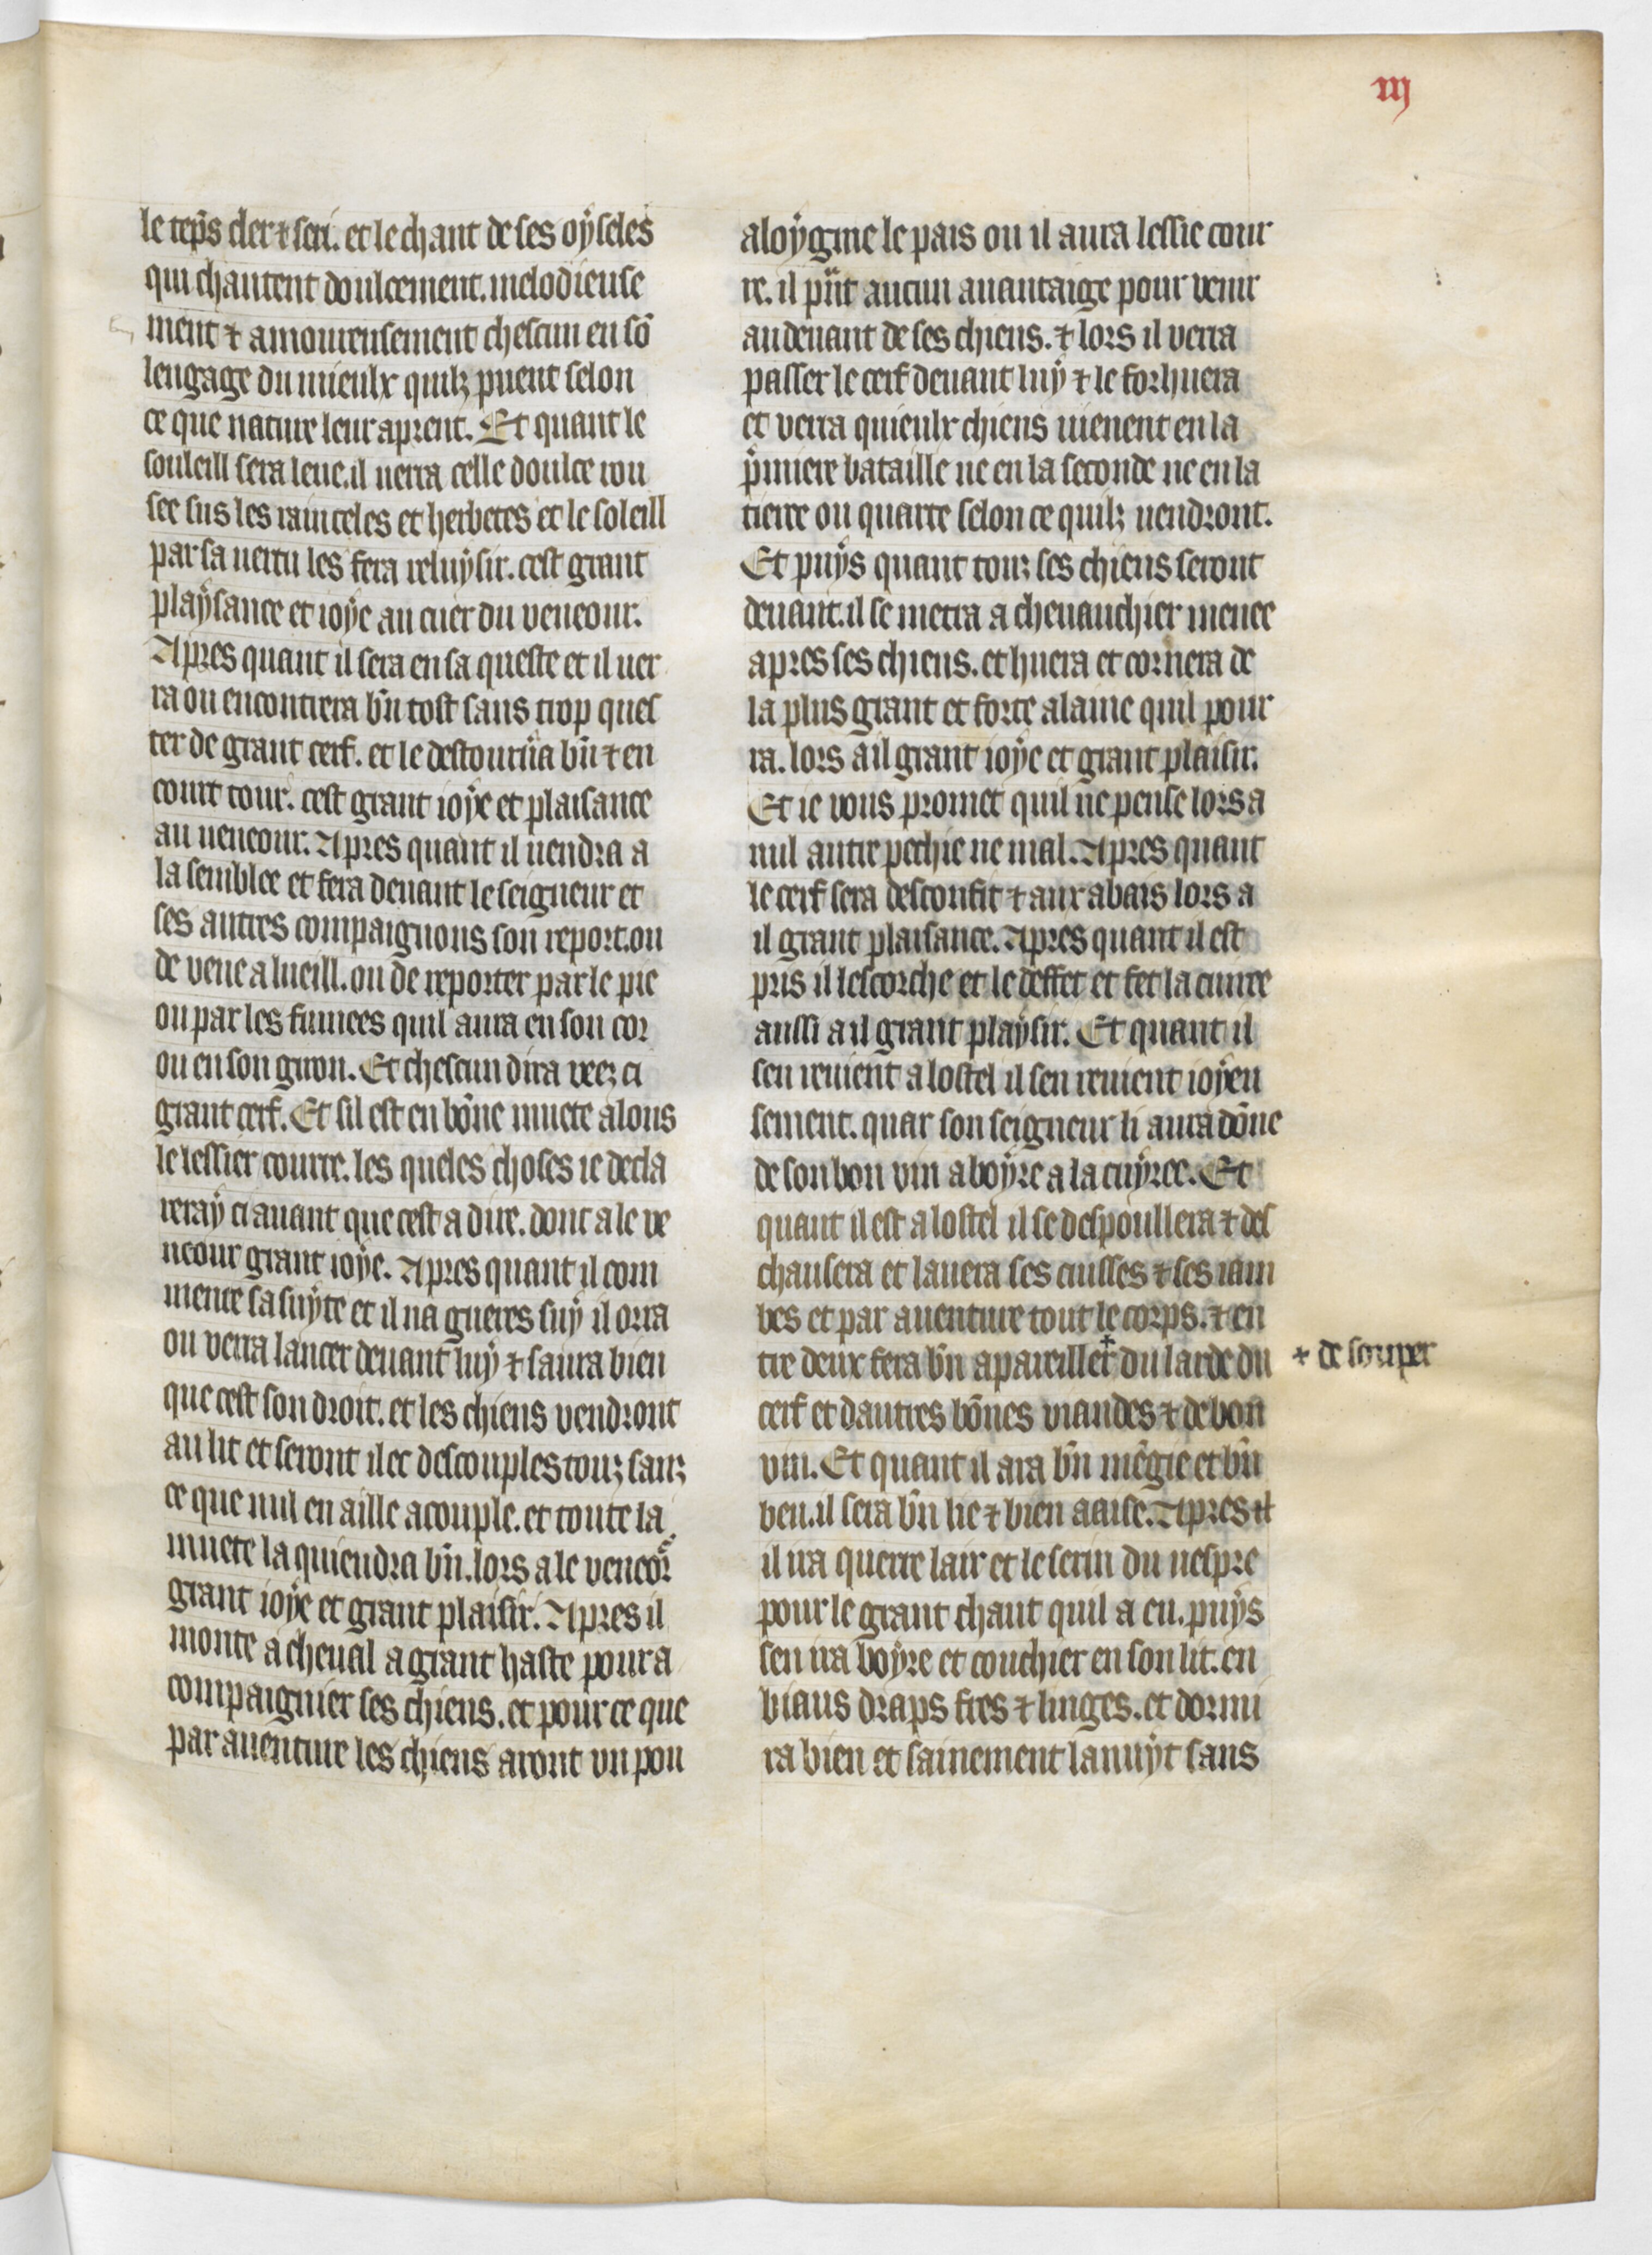 iij
le tep̃s cler ⁊ seri. et le chant de ses oẏseles
qui chantent doulcement. melodieuse
ment ⁊ amoureusement chescun en sõ
lengage du mieulx quilz puent selon
ce que nature leur aprent. Et quant le
souleill sera leue. il uerra celle doulce rou
see sus les rainceles et herbetes et le soleill
par sa uertu les fera reluẏsir. cest grant
plaẏsance et ioẏe au cuer du veneour.
Apres quant il sera en sa queste et il uer
ra ou encontrera bñ tost sans trop ques
ter de grant cerf. et le destourñra bñ ⁊ en
court tour. cest grant ioẏe et plaisance
au ueneour. Apres quant il uendra a
la semblee et fera deuant le seigneur et
ses autres compaignons son report. ou
de veue a lueill. ou de reporter par le pie
ou par les fumees quil aura en son cor
ou en son giron. Et chescun dira veez ci
grant cerf. Et sil est en bõne muete alons
le lessier courre. les queles choses ie decla
reraẏ ci auant que cest a dire. donc a le ve
neour grant ioẏe. Apres quant il com
mence sa suẏte et il na gueres suẏ il orra
ou verra lancer deuant luẏ ⁊ saura bien
que cest son droit. et les chiens vendront
au lit et seront ilec descouples touz sanz
ce que nul en aille acouple. et toute la
muete laquiendra bñ. lors a le veneor̃
grant ioẏe et grant plaisir. Apres il
monte a cheual a grant haste pour a
compaignier ses chiens. et pour ce que
par auenture les chiens aront vn pou
aloẏgnie le pais ou il aura lessie cour
re. il p̃nt aucun auantaige pour venir
au deuant de ses chiens. ⁊ lors il verra
passer le cerf deuant luẏ ⁊ le forhuera
et verra quieulx chiens uienent en la
p̃miere bataille ne en la seconde ne en la
tierre ou quarte selon ce quilz uendront.
Et puẏs quant touz ses chiens seront
deuant. il se metra a cheuauchier menee
apres ses chiens. et huera et cornera de
la plus grant et forte alaine quil pour
ra. lors a il grant ioẏe et grant plaisir.
Et ie vous promet quil ne pense lors a
nul autre pechie ne mal. Apres quant
le cerf sera desconfit ⁊ aux abais lors a
il grant plaisance. Apres quant il est
pris il lescorche et le deffet et fet la cuiree
aussi a il grant plaẏsir. Et quant il
sen reuient a lostel il sen reuient ioẏeu
sement. quar son seigneur li aura dõne
de son bon vin a boẏre a la cuẏree. Et
quant il est a lostel il se despoullera ⁊ des
chausera et lauera ses cuisses ⁊ ses iam
bes et par auenture tout le corps. ⁊ en
tre deux fera bñ apareiller + du larde du
+ de souper
cerf et dautres bõnes viandes ⁊ de bon
vin. Et quant il ara bñ mẽgie et bñ
beu. il sera bñ lie ⁊ bien aaise. Apres
il ira querre lair et le serin du uespre
pour le grant chaut quil a eu. puẏs
sen ira boẏre et couchier en son lit. en
biaus draps fres ⁊ linges. et dormi
ra bien et sainement la nuẏt sans